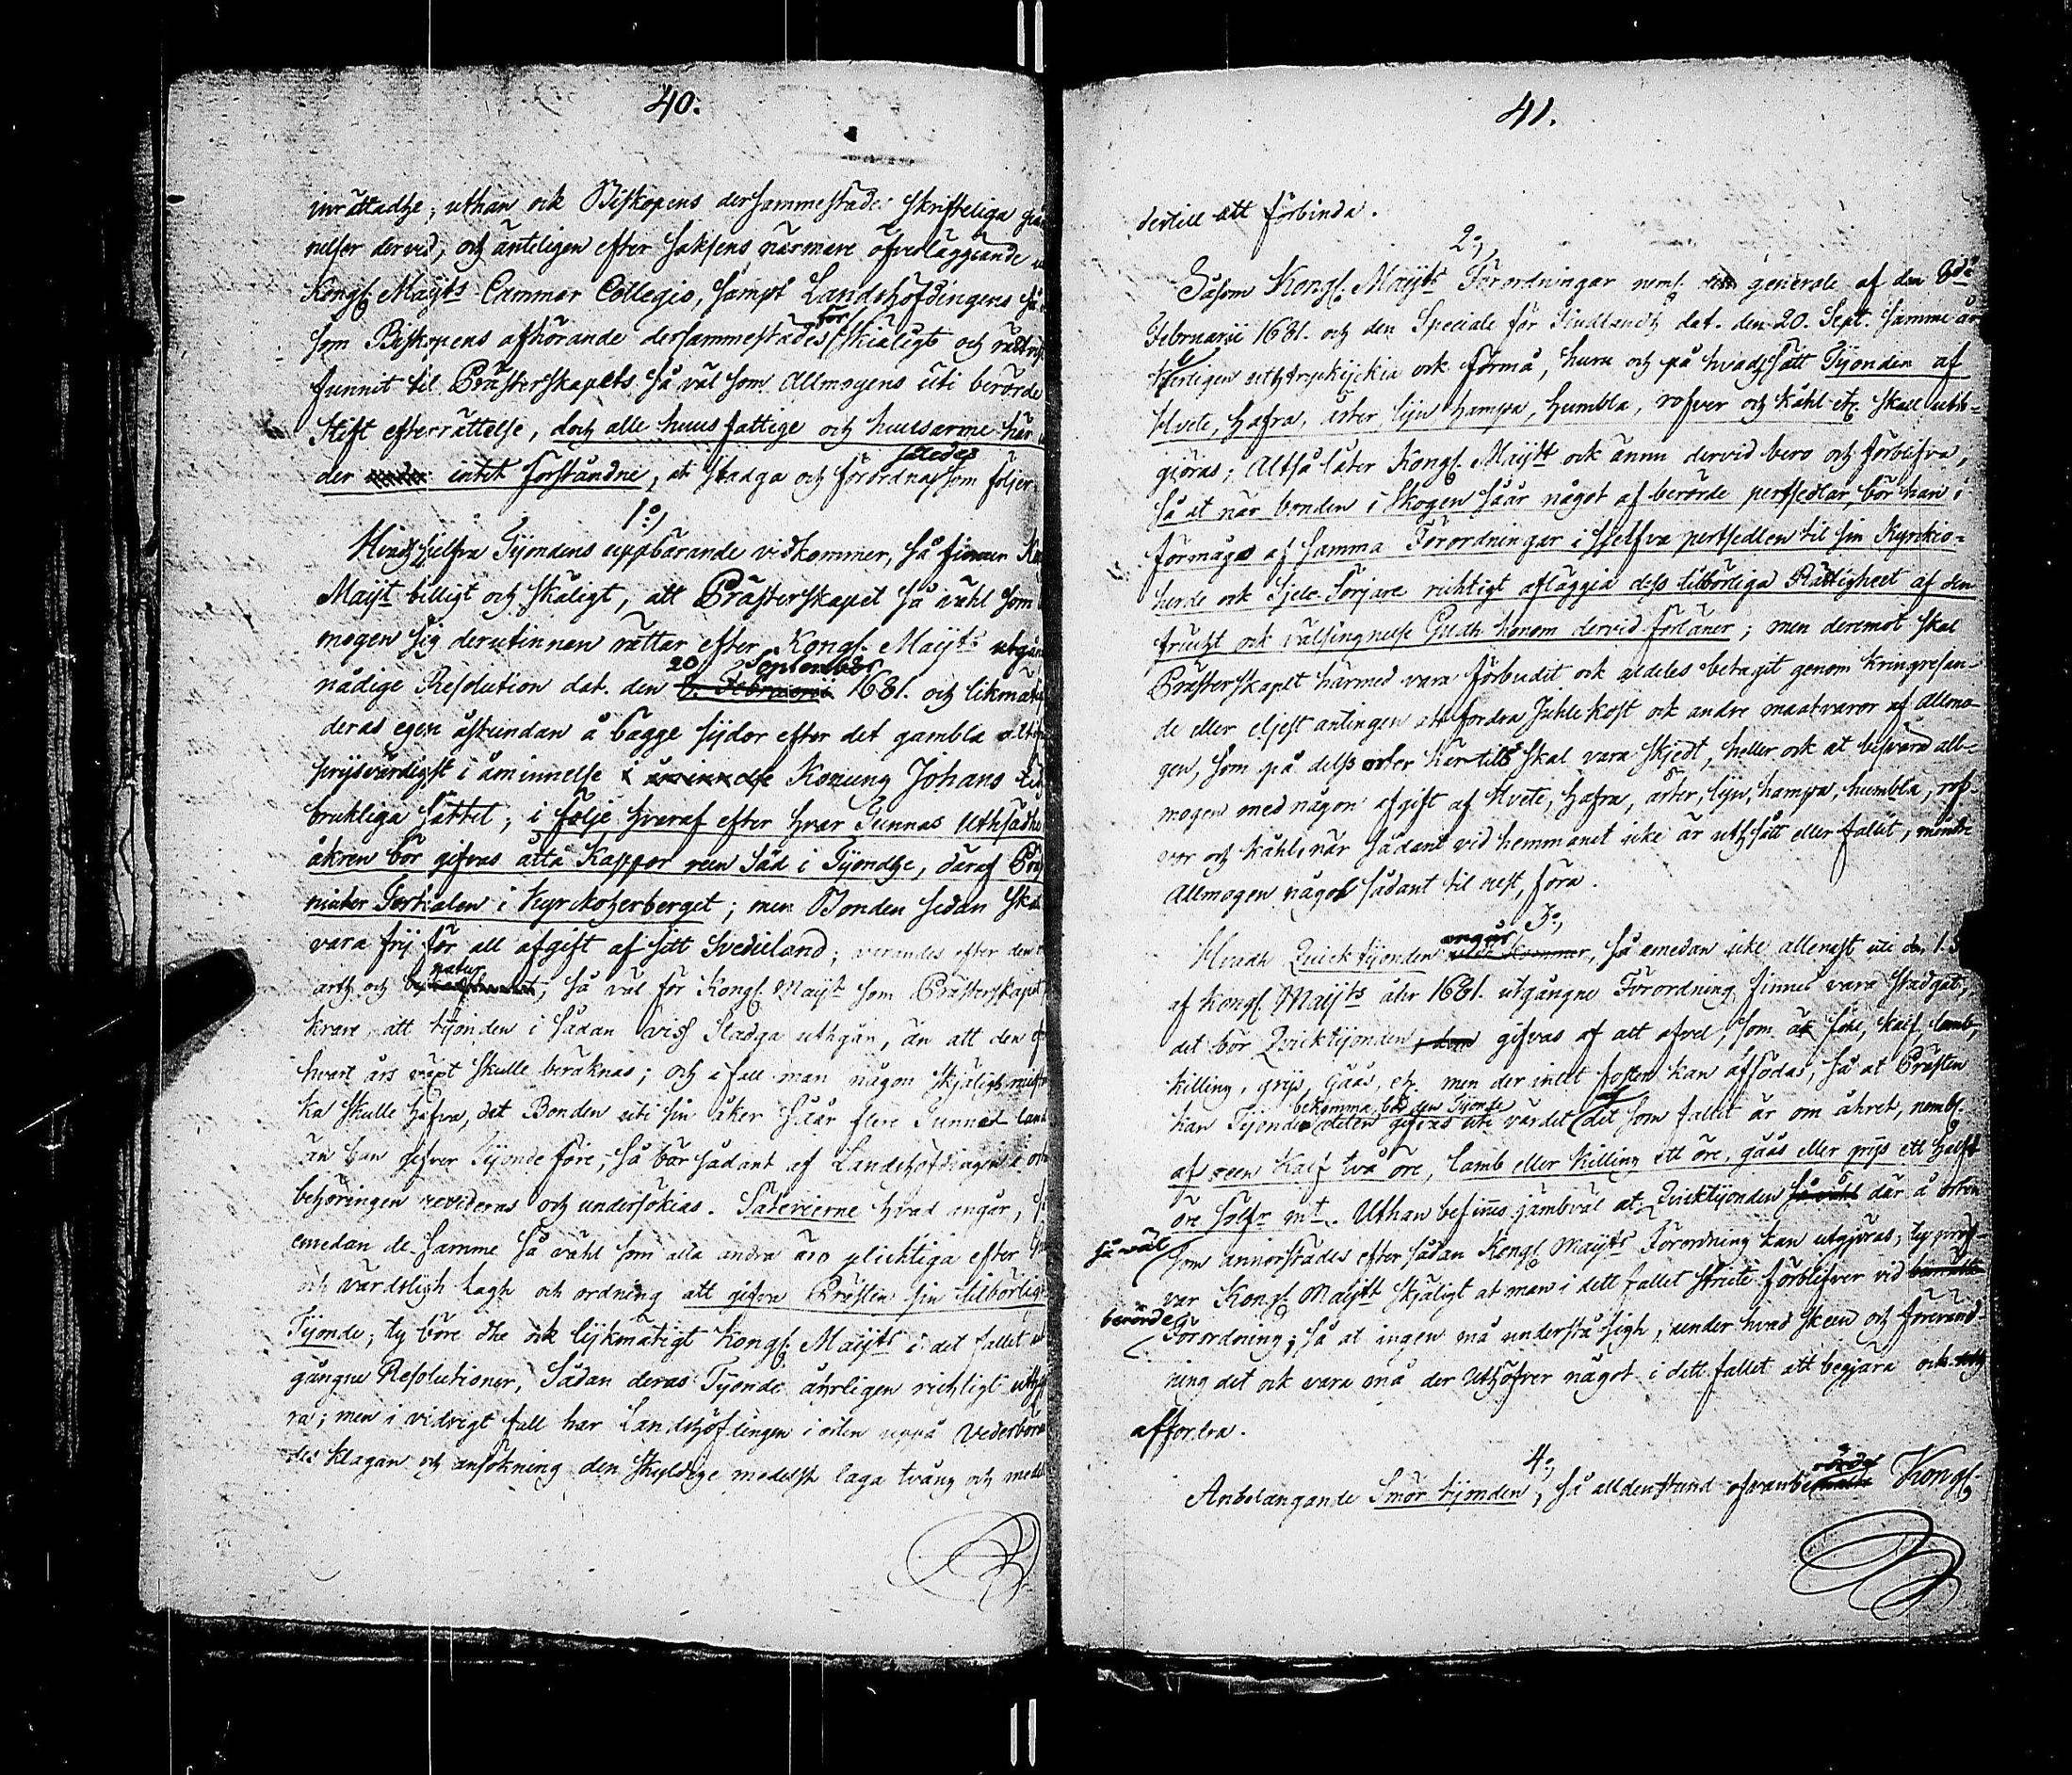 40.
inrättadhe, uthan ock Biskopens dersammestädes skrifteliga
nelser dervid, och änteligen efter saksens närmere öfverläggiande
Kongl. Maijts Cammer Collegio, sampt Landshöfdingens så
som Biskopens afhörande dersammestädes för skiäligt och rådt
funnit til Prästerskapets så väl som Allmogens uti berörde
Stift efterrättelse, doch alle huusfattige och huusarme här
der intet förståndne, at stadga och förordna således som följer
1:o/
Hvad sielfva Tijondens uppbärande vidkommer, så finner
Maijt billigt och skäligt, att Prästerskapet så vähl som
mogen sig derutinnan rättar efter Kongl. Maijts utgån
nådige Resolution dat. den 8. Februarii 20 September 1681. och likmätig
deras egen åstundan å bägge sijdor efter det gambla
prijsvärdigst i åminnelse i åminnelse Konung Johans
brukliga sättet; i följe hvaraf efter hvar Tunnas Uthsädhe
åkren bör gifvas åtta Kappor reen Säd i Tijondhe, däraf
niuter Tertialen i Kyrckoherberget; men Bonden sedan
vara frij för all afgift af sitt Svedieland; varandes efter den
arth och natur, så väl för Kongl. Maijt som Prästerskapet
krare, att tijonden i sådan viss Stadga uthgår, än att den
hvart års växt skulle beräknas; och i fall man någon skjäligh
ka skulle hafva, det Bonden uti sin åker såår flere Tunnel land
än han gifver Tijonde före, så bör sådant af Landshöfdingen i
behöringen revideras och undersökias. Säterierne hvad angår,
emedan de samme så vähl som alla andra äro plichtiga efter
och värdsligh lagh och ordning att gifva Prästen sin tilbörlig
Tijonde; ty böre dhe ock lijkmätigt Kongl. Maijts i det fallet
gångne Resolutioner, Sådan deras Tijonde åhrligen richtigt
ra; men i vidrigt fall har Landshöfdingen i orten uppå Vederböran
des klagan och ansökning den skyldige medelst laga tvång och
41.
dertill att förbinda.
2:o/
Såsom Kongl. Maijts Förordningar neml. generale af den 8de
Februarii 1681. och den Speciale för dat. den 20. Sept. samme år
uthtryckijckia ock förmå, huru och på hvadh sätt Tijonden af
Hvete, Hafra, ärter, lijn, hampa, humbla, rofver och kåhl etc. skall uth-
giöras; Altså låter Kongl. Maijtt ock ännu dervid bero och förblifva,
så at när bonden i Skogen såår något af berörde pertsedlar, bör han i
förmågo af samma Förordningar i sjelfva pertsedlen til sin Kyrckio-
herde ock Sjele-Sörjare richtigt afläggia dess tilbörliga Rättigheet af den
frucht ock välsingnelse Gudh honom dervid förlåner; men deremot skal
Prästerskapet härmed vara förbudit ock aldeles betagit genom kringresan-
de eller eljest antingen att fordra Juhlekost ock andre maatvaror af Allmo-
gen, som på delss orter här til skal vara skjedt, heller ock at besvära all-
mogen med någon afgift af Hvete, hafra, ärter, lijn, hampa, humbla, rof-
vor och kåhl, när sådant vid hemmanet icke är uthsått eller fallit, mindre
Allmogen något sådant til rest, föra.
3:o/
Hvadh Quicktijonden angår, så emedan icke allenast uti den 1.3
af Kongl. Maijts åhr 1681. utgångne Förordning finnes vara stadgat,
det bör Qvicktijonden gifvas af alt afvel, som är föhl, kalf, lamb,
killing, grijs, Gåås, etc. men der intet foster kan affödas, så at Prästen
bekomma, bör den Tijonde
kan Tijonde gifvas uti värdet af det som fallit är om åhret, nembl.
af reen Kalf två öre, lamb eller killing ett öre, gåås eller grijs ett halft
öre solfr mt. Uthan befinnes jämbväl at Quicktijonden så vähl där å orten
så väl som annorstädes efter sådan Kongl. Maijts Förordning kan utgjöras; ty pröf-
var Kongl. Maijtt skjäligt at man i dett fallet stricte förblifver vid
berörde Förordning; så at ingen må understå sigh, under hvad skeen och förevänd-
ning det ock vara må der uthöfver något i dett fallet att begjära och
affordra.
4:o/
Anbelangande Smör tijonden, så alldenstund ofvanberörde Kongl.